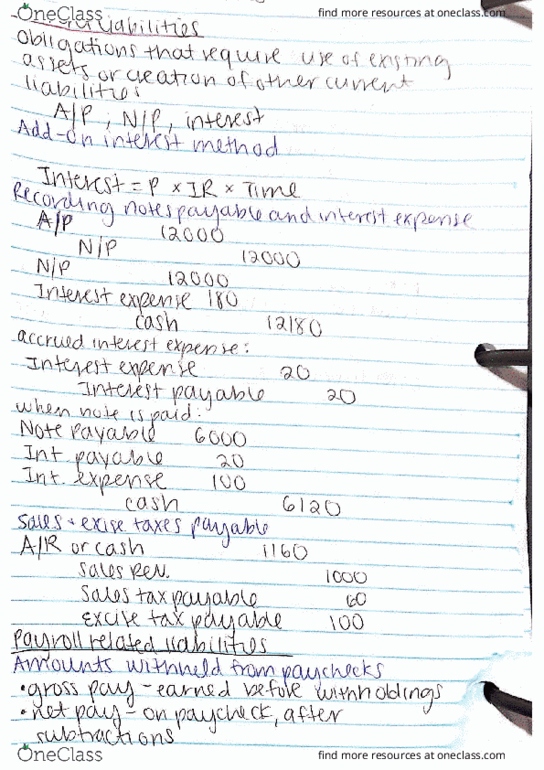 OneClass find more resources at oneclass.com
liabilities
Obligations that require use of existing
assets or creation of other current
liabilities
A/P, N/P, interest
Add-on interest method
Interest = P x IR x Time
Recording notes payable and interest expense
A/P 12000
N/P 12000
N/P 12000
Interest expense 180
cash 12180
accrued interest expense:
Interest expense 20
Interest payable 20
when note is paid:
Note Payable 6000
Int payable 20
Int. expense 100
cash 6120
Sales + exise taxes payable
A/R or cash 1160
Sales Rev. 1000
Sales tax payable 60
excise tax payable 100
Payroll related liabilities
Amounts withheld from paychecks
•gross pay - earned before withholdings
•net pay - on paycheck, after
subtractions
OneClass find more resources at oneclass.com